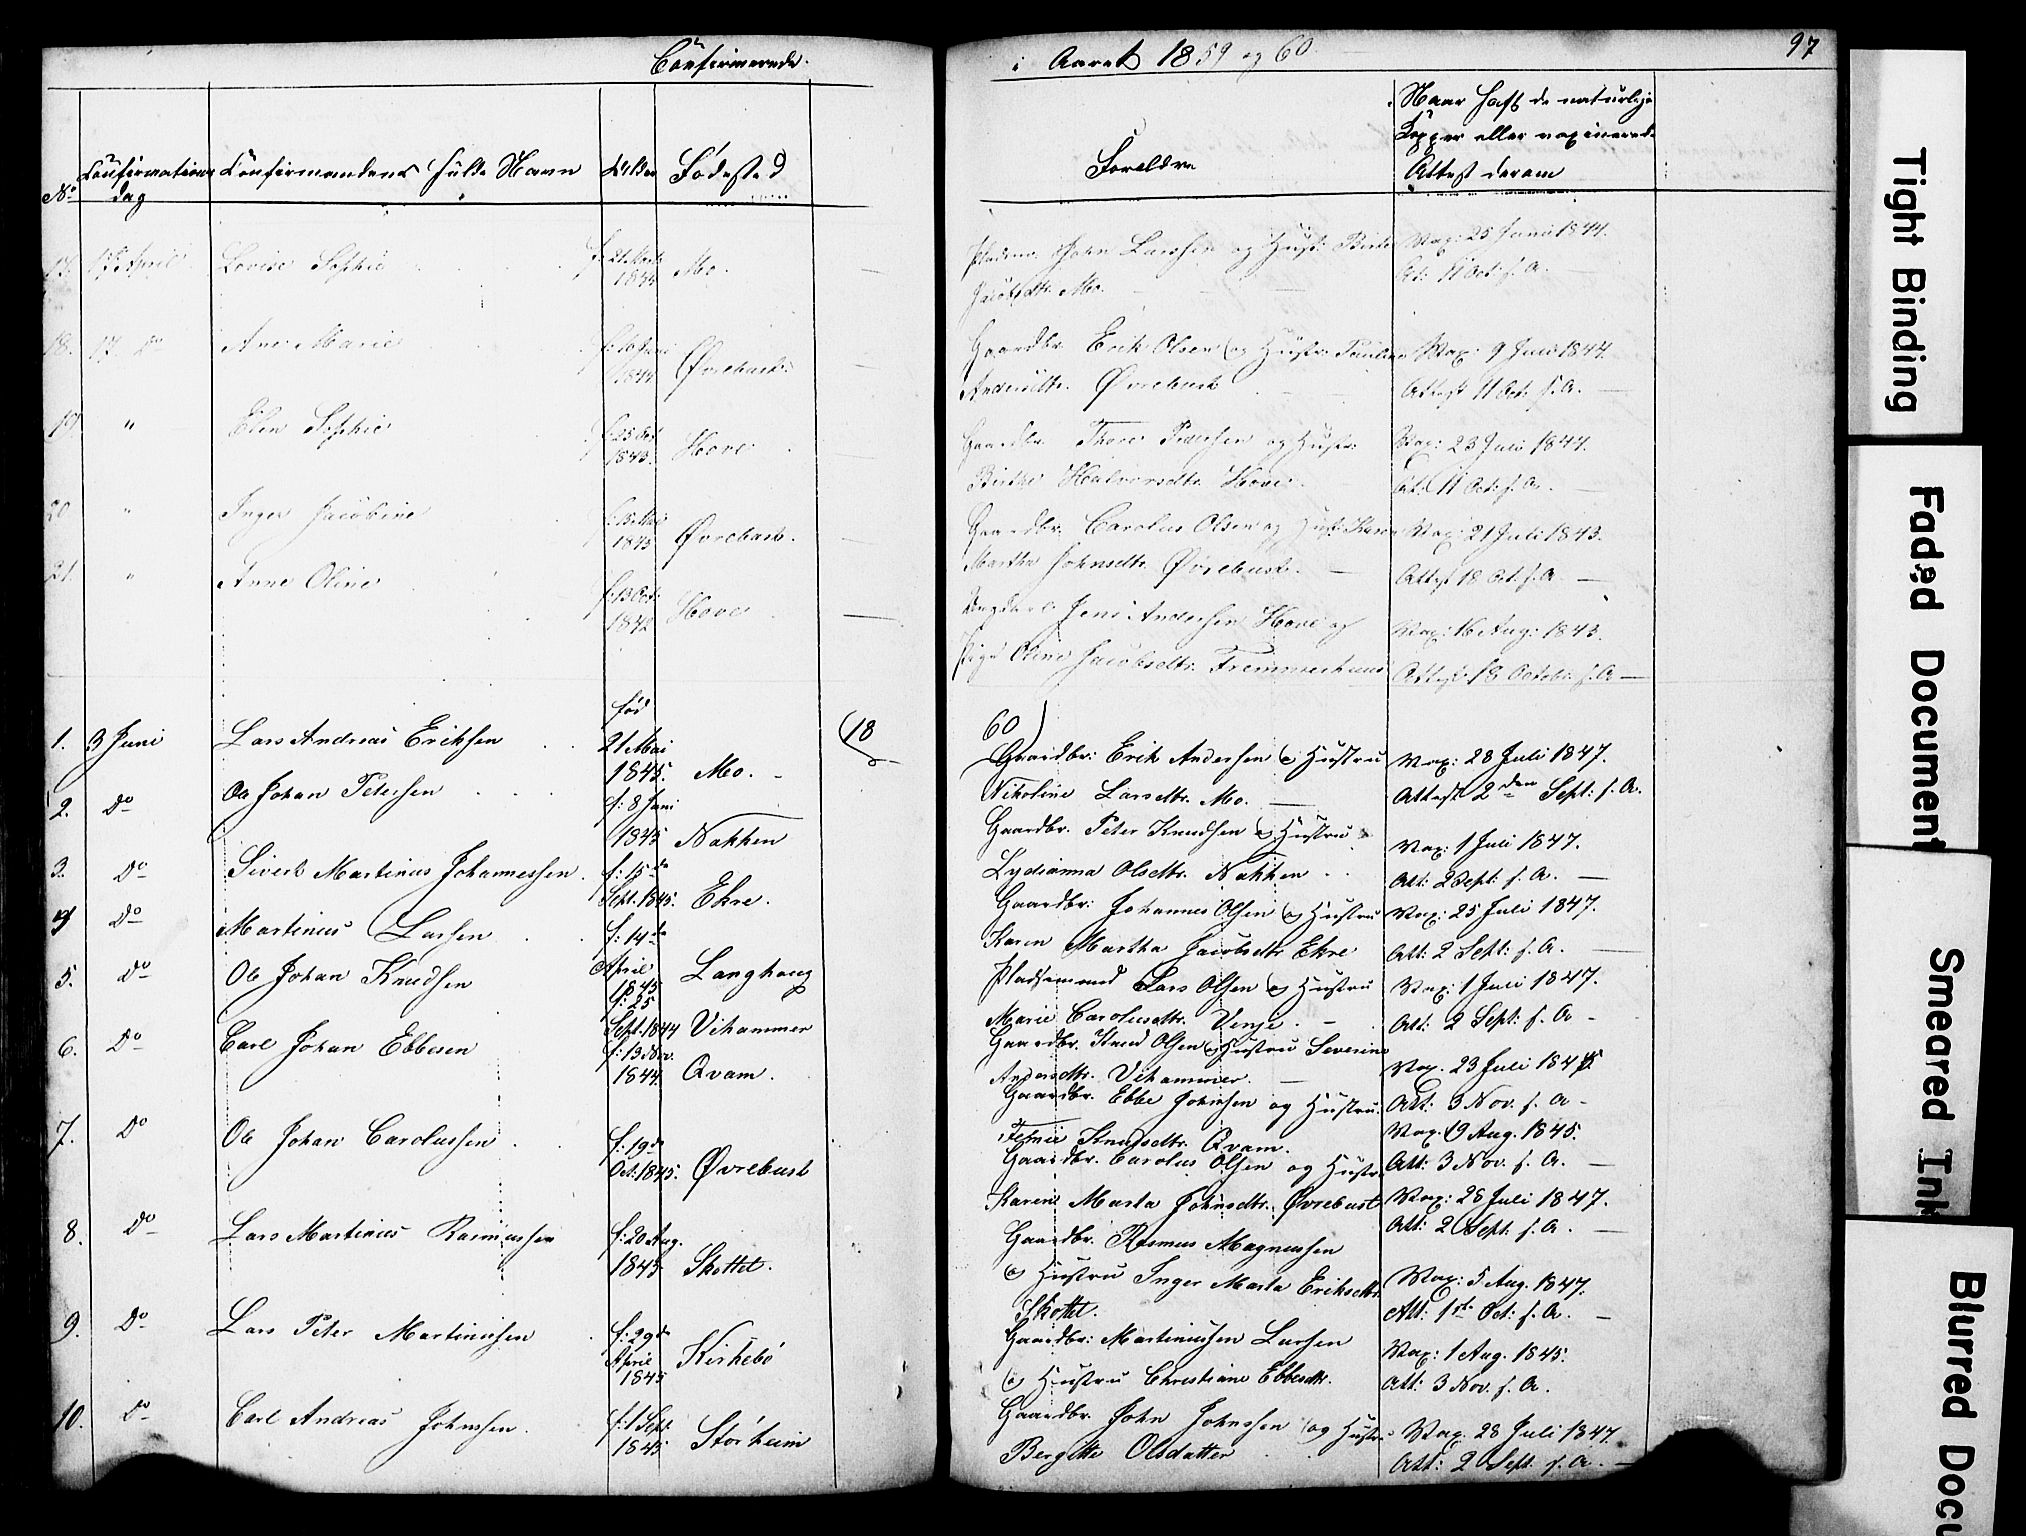 Confirmerede i Aaret 1859 og 60. 97
No Confirmations dag Confirmandens fulde Navn Alder Fødested Foreldre Naar haft de naturlige Kopper eller vaxinerede Attest derom
17. 17 April Lovise Sophie f: 21 1844 Mo. Pladsm. John Larssen og Hust: Birthe Vax: 25 Juni 1844.
Jacobsdtr. Mo. At: 11 Oct: s. A.
18. 17 Do Ane Marie f: 16 Juni 1844 Øvrebust. Gaardbr. Erik Olsen og Hustr: Pauline Vax: 9 Juli 1844.
Andersdtr. Øvrebust Attest 11 Oct: s. A.
19 " Elen Sophie f: 25 Oct 1843. Hove Gaardbr. Thore Pedersen og Hustr: Vax: 23 Juli 1844.
Birthe Halvorsdtr. Hove. At: 11 Oct: s. A.
20 " Inger Jacobine f: 15 Mai 1843 Øvrebust. Gaardbr. Carolus Olsen og Hust: Karen Vax: 21 Juli 1843.
Martha Johnsdtr. Øvrebust. Attest 18 Oct: s. A.
21. " Anne Oline f: 13 Oct: 1842 Hove Ungkarl Jens Andersen Hove og Vax: 16 Aug: 1843.
Pige Oline Jacobsdtr. Fremmerhuus Attest 18 Octobr: s. A
(18 60)
1. 3 Juni Lars Andreas Eriksen fød 21 Mai 1845. Mo. Gaardbr: Erik Andersen og Hustru Vax: 28 Juli 1847.
Nikoline Larsdtr. Mo. Attest 2den Sept: s. A.
2. Do Ole Johan Petersen f: 8 Juni 1845 Nakken Gaardbr. Peter Knudsen og Hustru Vax: 1 Juli 1847.
Lydianna Olsdtr. Nakken Att: 2 Sept: s. A.
3. Do Sivert Martinus Johannessen. f: 15de Sept. 1845. Ekre. Gaardbr: Johannes Olsen og Hustru Vax: 25 Juli 1847.
Karen Martha Jacobsdtr Ekre Att: 2 Sept: s. A.
4 Do Martinus Larsen f: 14de April 1845 Langhaug Pladsemand Lars Olsen og Hustru Vax: 1 Juli 1847.
Marie Carolusdtr. Venje. Att: 2 Sept: s. A.
5. Do Ole Johan Knudsen f: 25 Sept. 1844 Vihammer Gaardbr. Knud Olsen og Hustru Severine Vax. 23 Juli 1845
Andersdtr. Vihammer. Att: 3 Nov. s. A.
6. Do Carl Johan Ebbesen f: 13 Nov. 1844. Qvam. Gaardbr. Ebbe Johnsen og Hustru. Vax. 19 Aug. 1845.
Knudsdtr. Qvam. Att: 3 Nov. s. A.
7. Do Ole Johan Carolussen f: 19de Oct: 1845. Øvrebust Gaardbr. Carolus Olsen og Hustr: Vax: 28 Juli 1847.
Karen Marta Johnsdtr. Øvrebust Att: 2 Sept: s. A.
8. Do Lars Martinus Rasmussen f: 20 Aug. 1845 Skottet. Gaardbr. Rasmus Magnussen
og Hustru Inger Marta Eriksdtr. Vax: 5 Aug. 1847.
Skottet. Att: 1ste Oct: s. A.
9. Do Lars Peter Martinussen f: 29de April 1845 Kirkebø Gaardbr: Martinussen Larsen Vax: 1 Aug. 1845.
og Hustru Christiane Ebbesdtr. Att: 3 Nov. s. A.
10. Do Carl Andreas Johnssen. f: 1 Sept. 1845 Storheim Gaardbr. John Johnssen og Hustru Vax. 28 Juli 1847.
Bergitte Olsdatter Att: 2 Sept. s. A.
Tight Binding
Faded Document
Smeared Ink
Blurred Docu